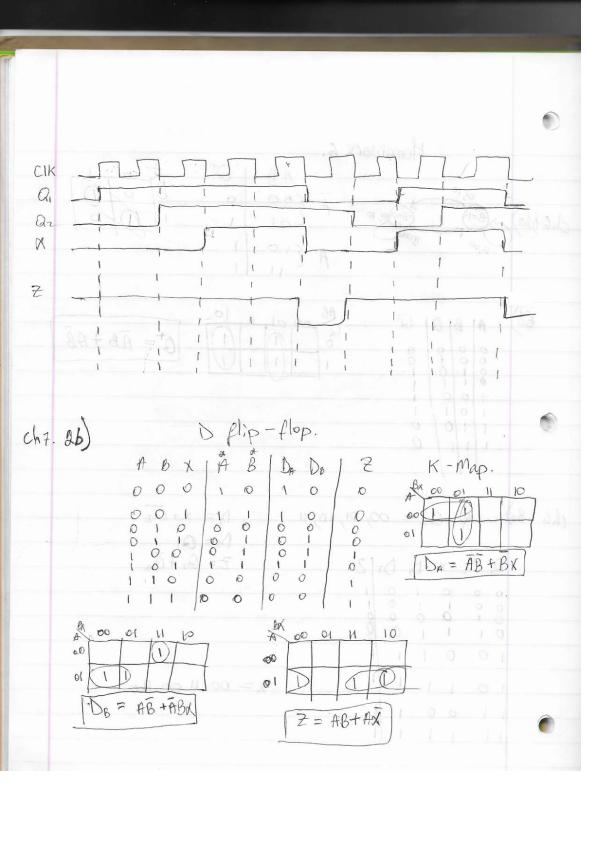 CLK
Q1
Q2
X
Z
Ch7. 2b) D flip-flop.
A B X A* B* DA DB Z
0 0 0 1 0 1 0 0
0 0 1 1 1 0 0
0 1 0 0 0 0 0 0
0 1 1 0 1 0 1 0
1 0 0 1
1 0 1 1 1 1 1 0
1 1 0 0 0 0 0 1
1 1 1 0 0 0 0 1
K-Map.
BX
A 00 01 11 10
00 1 1
01 1
DA = A̅B̅ + B̅X
BX
A 00 01 11 10
00 1
01 1 1
DB = AB̅ + A̅BX
BX
A 00 01 11 10
00
01 1 1 1
Z = AB + AX̅